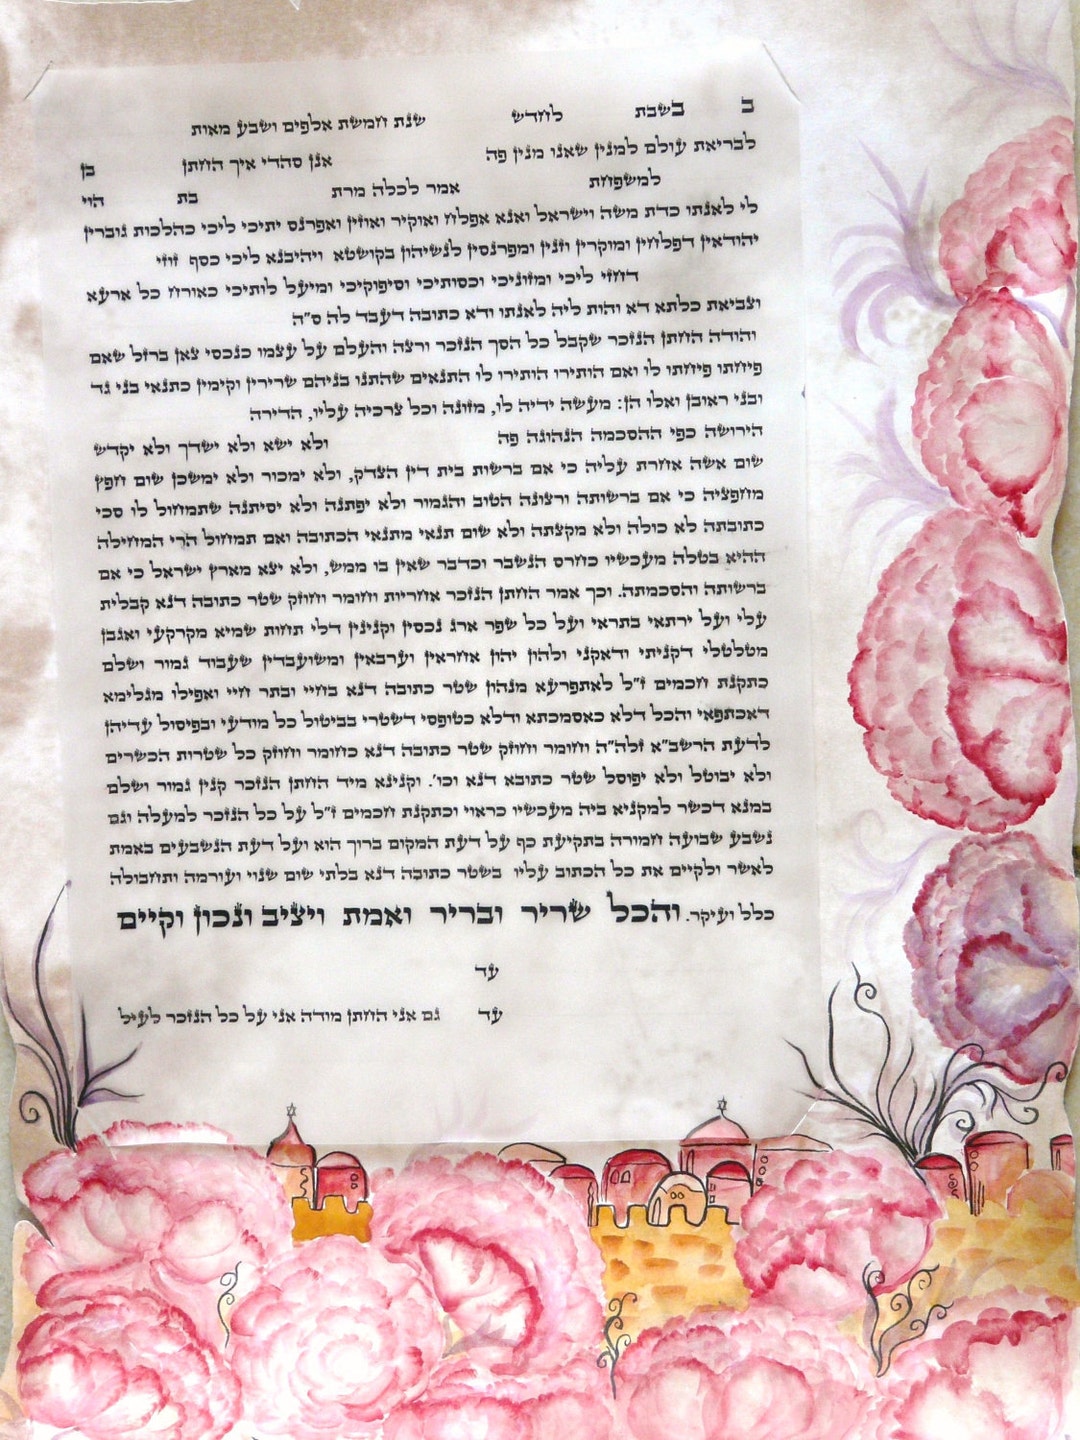 ב בשבת לחדש שנת חמשת אלפים ושבע מאות
לבריאת עולם למנין שאנו מנין פה אנן סהדי איך החתן בן
למשפחת אמר לכלה מרת בת הוי
לי לאנתו כדת משה וישראל ואנא אפלח ואוקיר ואוזין ואפרנס יתיכי ליכי כהלכות גוברין
יהודאין דפלחין ומוקרין וזנין ומפרנסין לנשיהון בקושטא ויהיבנא ליכי כסף זוזי
דחזי ליכי ומזוניכי וכסותיכי וסיפוקיכי ומיעל לותיכי כאורח כל ארעא
וצביאת כלתא דא והות ליה לאנתו ודא כתובה דעבד לה ס"ה
והודה החתן הנזכר שקבל כל הסך הנזכר ורצה והעלם על עצמו כנכסי צאן ברזל שאם
פיחתו פיחתו לו ואם הותירו הותירו לו התנאים שהתנו בניהם שרירין וקימין כתנאי בני גד
ובני ראובן ואלו הן: מעשה ידיה לו, מזונה וכל צרכיה עליו, הדירה
הירושה כפי ההסכמה הנהוגה פה ולא ישא ולא ישדך ולא יקדש
שום אשה אחרת עליה כי אם ברשות בית דין הצדק, ולא ימכור ולא ימשכן שום חפץ
מחפציה כי אם ברשותה ורצונה הטוב והגמור ולא יפתנה ולא יסיתנה שתמחול לו סכי
כתובתה לא כולה ולא מקצתה ולא שום תנאי מתנאי הכתובה ואם תמחול הרי המחילה
ההיא בטלה מעכשיו כחרס הנשבר וכדבר שאין בו ממש, ולא יצא מארץ ישראל כי אם
ברשותה והסכמתה. וכך אמר החתן הנזכר אחריות וחומר וחוזק שטר כתובה דנא קבלית
עלי ועל ירתאי בתראי ועל כל שפר ארג נכסין וקנינין דלי תחות שמיא מקרקעי ואגבן
מטלטלי דקניתי ודאקני ולהון יהון אחראין וערבאין ומשועבדין שעבוד גמור ושלם
כתקנת חכמים ז"ל לאתפרעא מנהון שטר כתובה דנא בחיי ובתר חיי ואפילו מגלימא
דאכתפאי והכל דלא כאסמכתא ודלא כטופסי דשטרי בביטול כל מודעי ובפיסול עדיהן
לדעת הרשב"א זלה"ה וחומר וחוזק שטר כתובה דנא כחומר וחוזק כל שטרות הכשרים
ולא יבוטל ולא יפוסל שטר כתובא דנא וכו'. וקנינא מיד החתן הנזכר קנין גמור ושלם
במנא דכשר למקניא ביה מעכשיו כראוי וכתקנת חכמים ז"ל על כל הנזכר למעלה וגם
נשבע שבועה חמורה בתקיעת כף על דעת המקום ברוך הוא ועל דעת הנשבעים באמת
לאשר ולקיים את כל הכתוב עליו בשטר כתובה דנא בלתי שום שנוי ועורמה ותחבולה
כלל ועיקר. והכל שריר ובריר ואמת ויציב ונכון וקיים
עד
עד גם אני החתן מודה אני על כל הנזכר לעיל